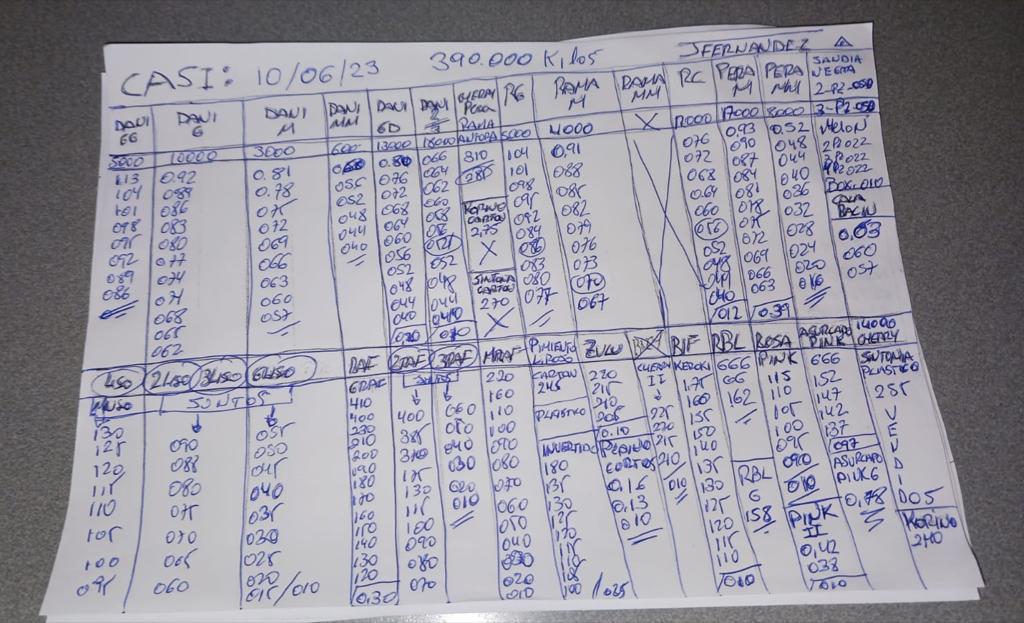 CASI: 10/06/23 390.000 Kilos JFERNANDEZ
DANI GG DANI G DANI M DANI MM DANI GD DANI CHERRY PERA RAMA RG RAMA M RAMA MM RC PERA M PERA MM SANDIA NEGRA
2-P2-050
3-P2-050
5000 10000 3000 600 13000 18000 5000 4000 X 12000 17000 8000
113 0.92 0.81 060 0.80 066 310 104 0.91 076 0.93 0.52 MELON
104 089 0.78 056 076 064 285 101 088 072 090 048 2P2022
101 086 075 052 072 062 098 085 068 087 044 3P2022
098 083 072 048 068 060 KORINO CARTON 095 082 064 084 040 4P2022
095 080 069 044 064 058 2,75 092 079 060 081 036 BOX 010
092 077 066 040 060 056 X 084 076 056 078 032 CALA BACIN
089 074 063 056 054 086 073 052 075 028 0.03
086 071 060 052 052 SINTONIA CARTON 083 070 048 072 024 060
068 057 048 048 270 080 067 044 069 020 057
065 044 044 X 077 040 066 016
062 040 040 012 063 0.39
020 010
1LISO 2LISO 3LISO 6LISO RAF 2RAF 3RAF MRAF PIMIENTO LISO ZULU CHERRY II RIF RBL ROSA ASURCADO PINK 14000 CHERRY
MLISO JUNTOS GRAF JUNTOS 220 CARTON 245 220 KEROKI 666 PINK 666 SINTONIA PLASTICO
130 090 055 410 400 060 160 PLASTICO 215 225 175 66 115 152 255
125 085 050 400 385 050 110 INVERTIDO 210 220 160 162 110 147 VEVVDIDOS
120 080 045 230 310 040 100 180 205 215 155 RBL G 105 142 KORINO 240
115 075 040 210 175 030 090 135 0.10 210 150 158 100 137
110 070 035 200 130 020 080 130 PLANO CORTOS 010 140 095 097
105 065 030 190 115 010 070 125 0.16 135 090 ASURCADO PINK G
100 060 025 180 100 060 120 0.13 130 010 0,78
095 020 170 090 050 115 010 125 PINK II
015/010 160 080 040 110 120 0,42
150 070 030 108 115 038
140 020 100 /025 110 010
130 010 010
120
0.30